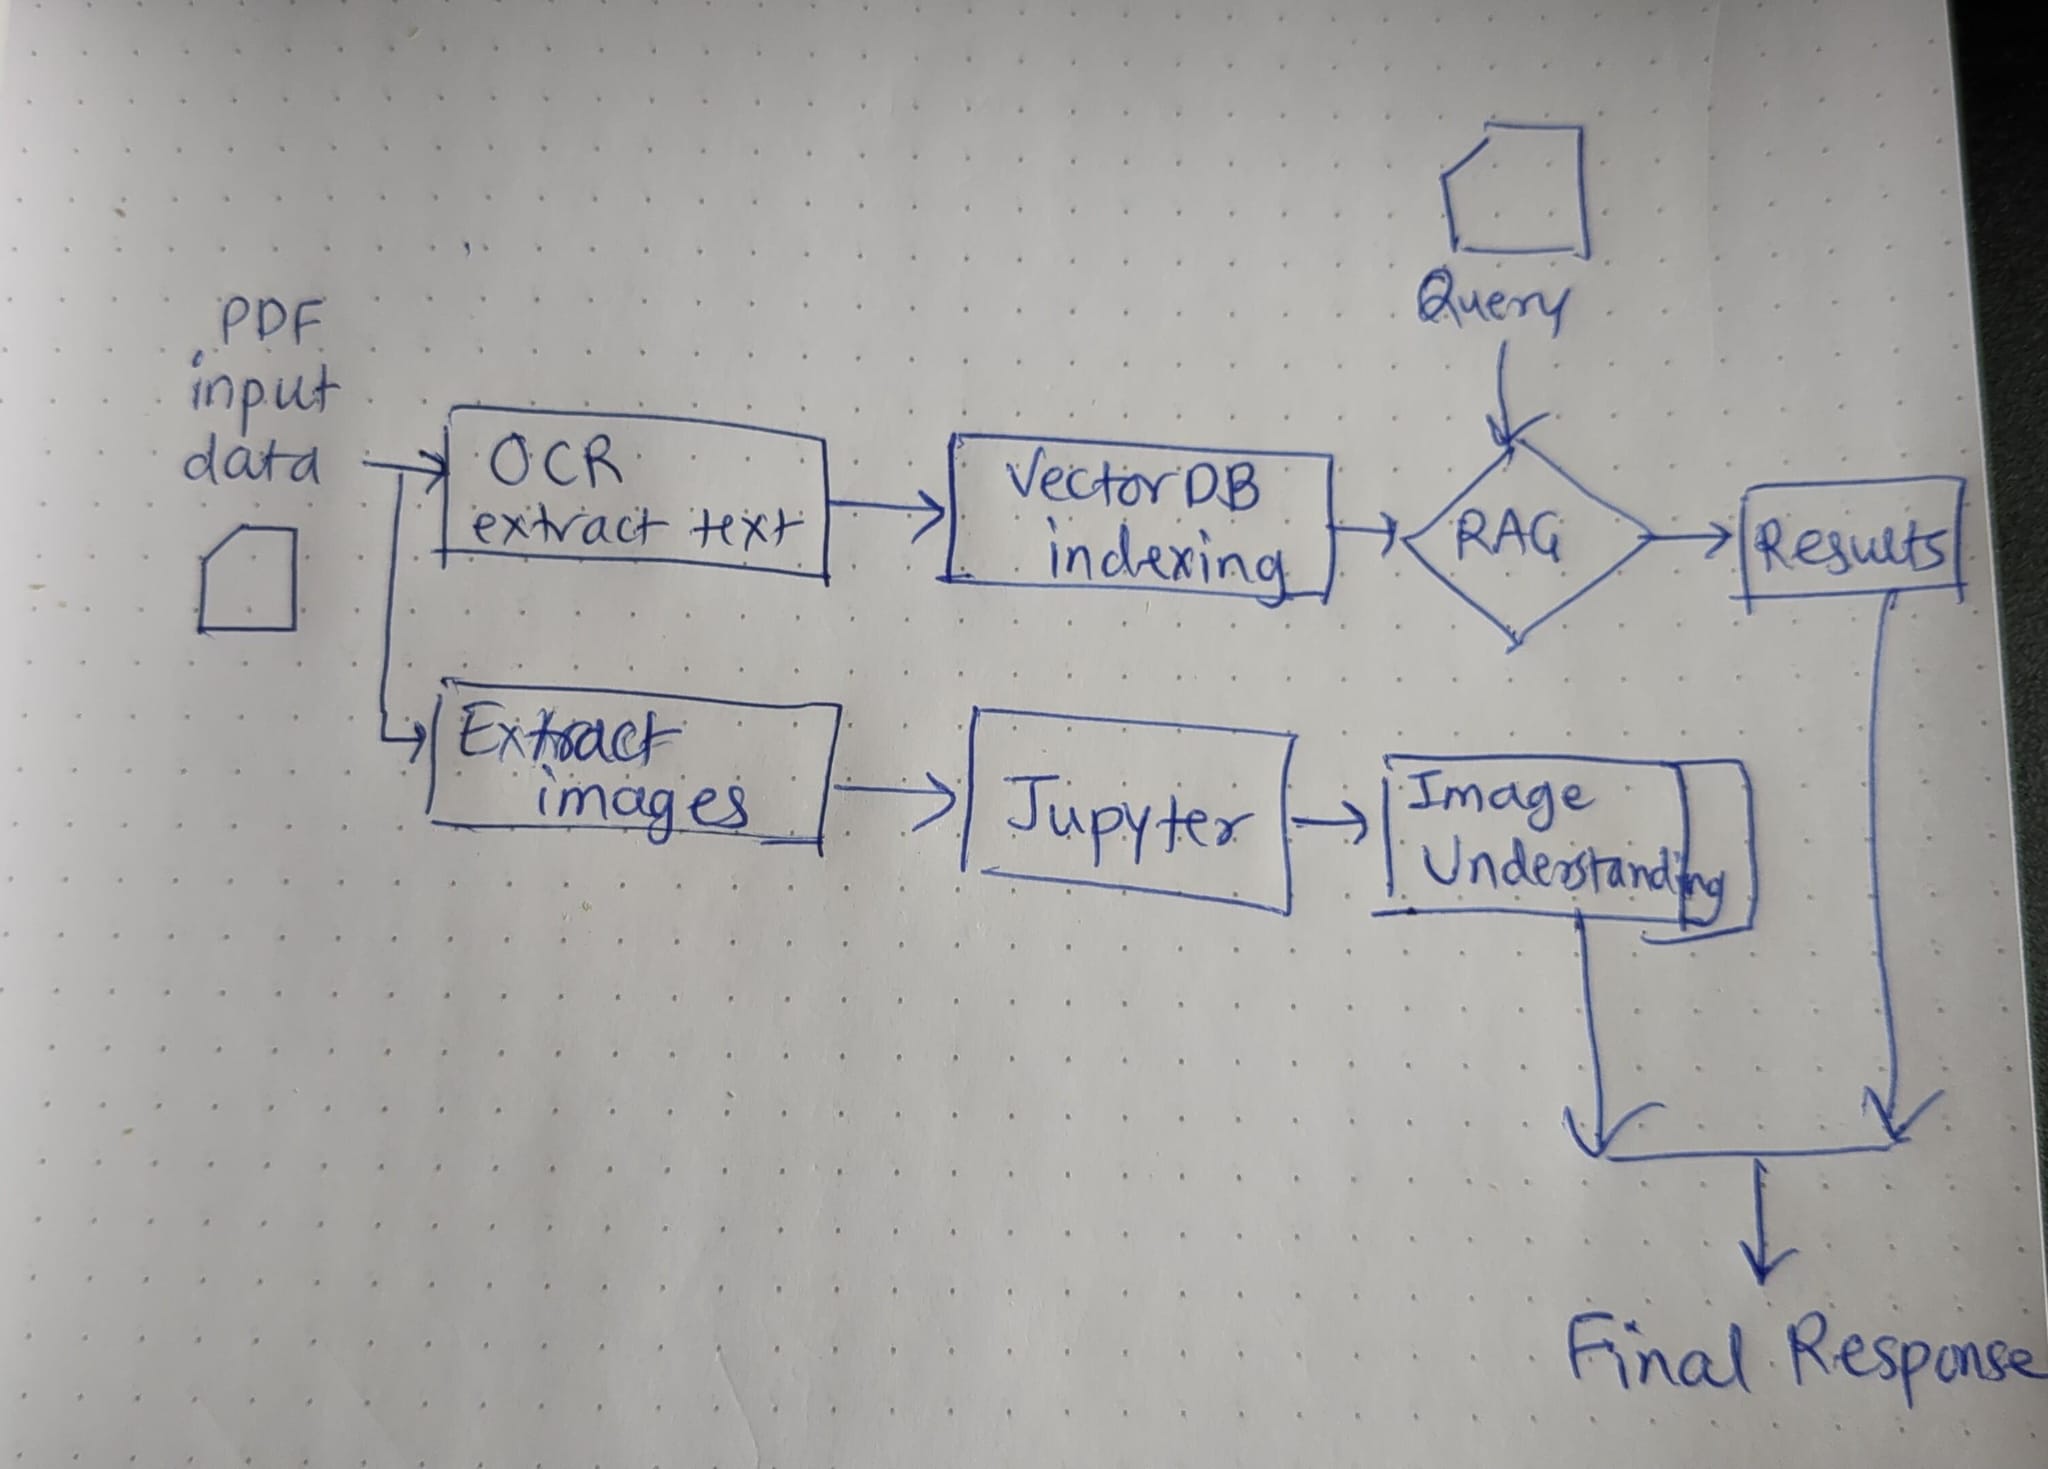 Query
PDF
input
data
OCR
extract text
VectorDB
indexing
RAG
Results
Extract
images
Jupyter
Image
Understanding
Final Response